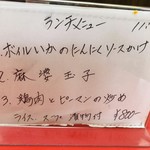 ランチメニュー
1.ボイルいかのにんにくソースかけ
2.麻婆玉子
3.鶏肉とピーマンの炒め
ライス スープ 漬物付 ¥800